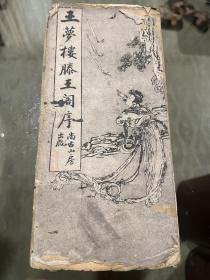 王夢樓滕王閣序
尚古山房
出版